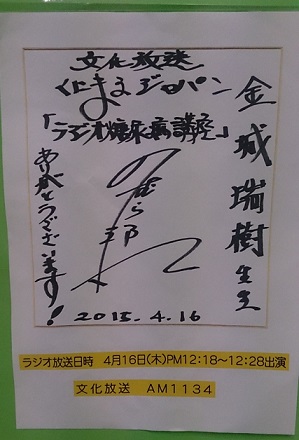 文化放送
くにまるジャパン
「ラジオ糖尿病講座」
金城瑞樹先生
ありがとうございます!
2015.4.16
ラジオ放送日時 4月16日(木)PM12:18〜12:28出演
文化放送 AM1134